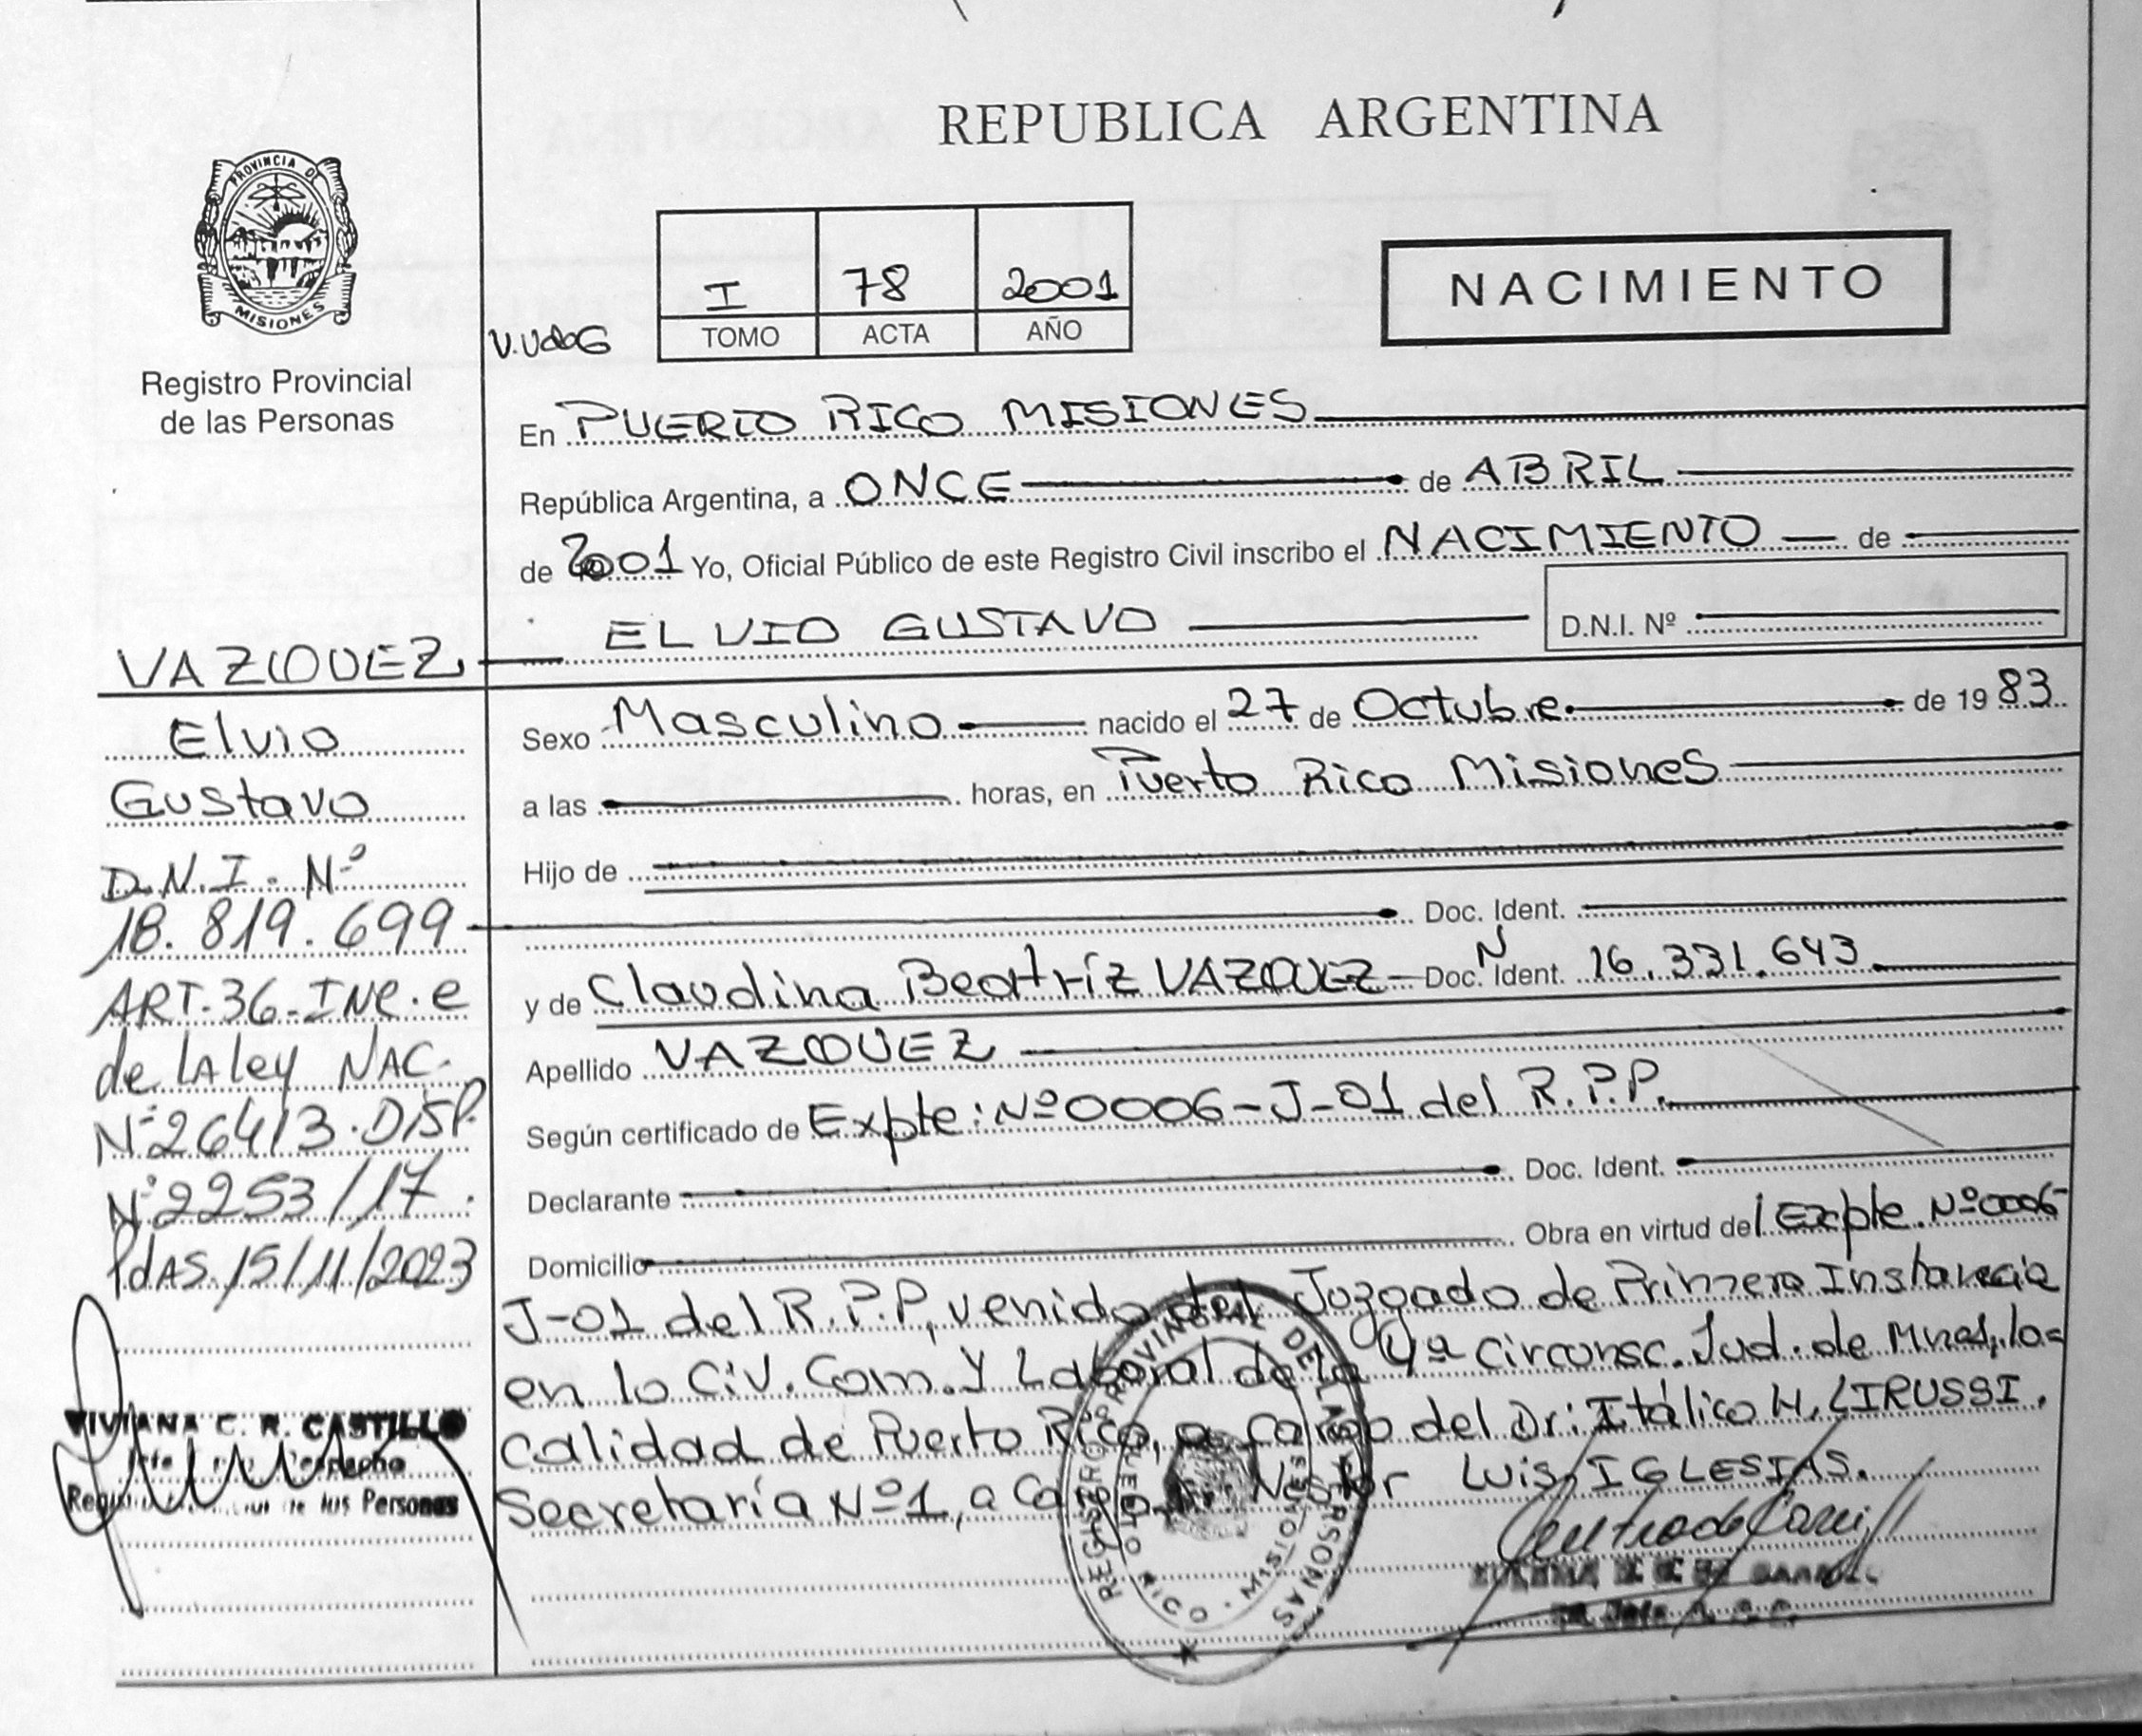 REPUBLICA ARGENTINA
PROVINCIA DE
MISIONES
Registro Provincial
de las Personas
I 78 2001
TOMO ACTA AÑO
NACIMIENTO
En PUERTO RICO MISIONES
República Argentina, a ONCE de ABRIL
de 2001 Yo, Oficial Público de este Registro Civil inscribo el NACIMIENTO de
VAZQUEZ ELVIO GUSTAVO D.N.I. Nº
Sexo Masculino nacido el 27 de Octubre de 1983
a las horas, en Puerto Rico Misiones
Hijo de
Doc. Ident.
y de Claudina Beatríz VAZQUEZ Doc. N Ident. 16.331.643
Apellido VAZQUEZ
Según certificado de Expte: Nº 0006-J-01 del R.P.P.
Declarante Doc. Ident.
Domicilio Obra en virtud del Expte. Nº 0006
J-01 del R.P.P, venido del Juzgado de Primera Instancia
en lo Civ. Com. Y Laboral de la 4ª Circunsc. Jud. de Mnes, lo=
calidad de Puerto Rico, a cargo del Dr: Itálico H. LIRUSSI.
Secretaría Nº 1, a Cargo Nestor Luis IGLESIAS.
Elvio
Gustavo
D.N.I. Nº
18.819.699
ART. 36-INC. e
de LA ley NAC.
Nº 26413. DISP.
Nº 2253/17.
PdAS. 15/11/2023
VIVIANA C. R. CASTILLO
Despacho
de las Personas
REGISTRO PROVINCIAL DE LAS PERSONAS
PUERTO RICO - MISIONES